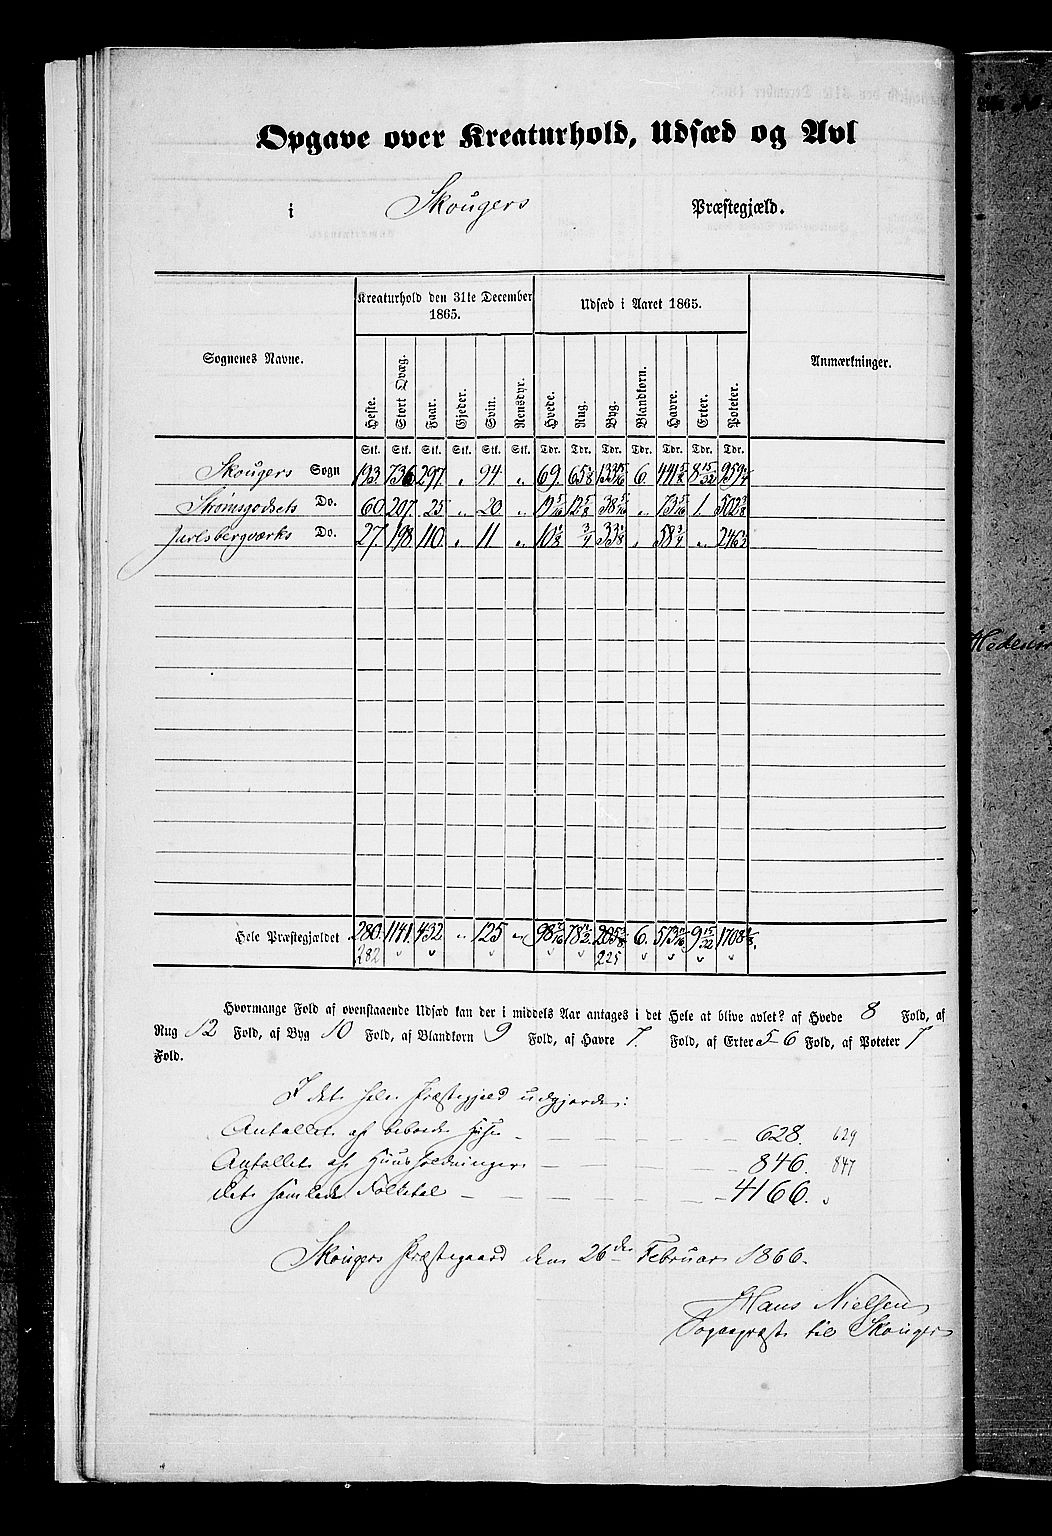 Opgave over Kreaturhold, Udsæd og Avl
i Skougers Præstegjæld.
Sognenes Navne. Kreaturhold den 31te December 1865. Udsæd i Aaret 1865. Anmærkninger.
Heste. Stort Qvæg. Faar. Gjeder. Svin. Rensdyr. Hvede. Rug. Byg. Blandkorn. Havre. Erter. Poteter.
Stk. Stk. Stk. Stk. Stk. Stk. Tdr. Tdr. Tdr. Tdr. Tdr. Tdr. Tdr.
Skougers Sogn 193 736 297 " 94 " 69. 65 1/8 6. 8 15/32
Strømsgodsets Do. 60 207 25 " 20 " 19 5/16 12 5/8 38 5/16 " 73 5/16 1. 502 3/8
Jarlsbergværks Do. 27 198 110 " 11 " 10 1/8 3/4 33 1/8 " 58 3/4 "
Hele Præstegjældet 280. 1141. 432 " 125 " 6. 9 15/32
282 225
Hvormange Fold af ovenstaaende Udsæd kan der i middels Aar antages i det Hele at blive avlet? af Hvede 8 Fold, af
Rug 12 Fold, af Byg 10 Fold, af Blandkorn 9 Fold, af Havre 7. Fold, af Erter 5-6 Fold, af Poteter 7
Fold.
I det hele Præstegjeld udgjorde:
Antallet af beboede Huse 628. 629
Antallet af Huusholdninger 846. 847
det samlede Folketal 4166.
Skougers Præstegaard den 26de Februar 1866.
Hans Nielsen
Sognepræst til Skouger
Hedenst